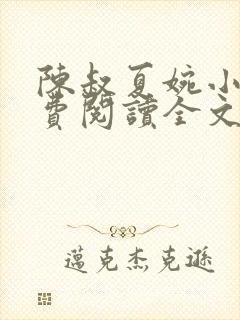 陳叔夏婉小
費閱讀全文
邁克杰克遜